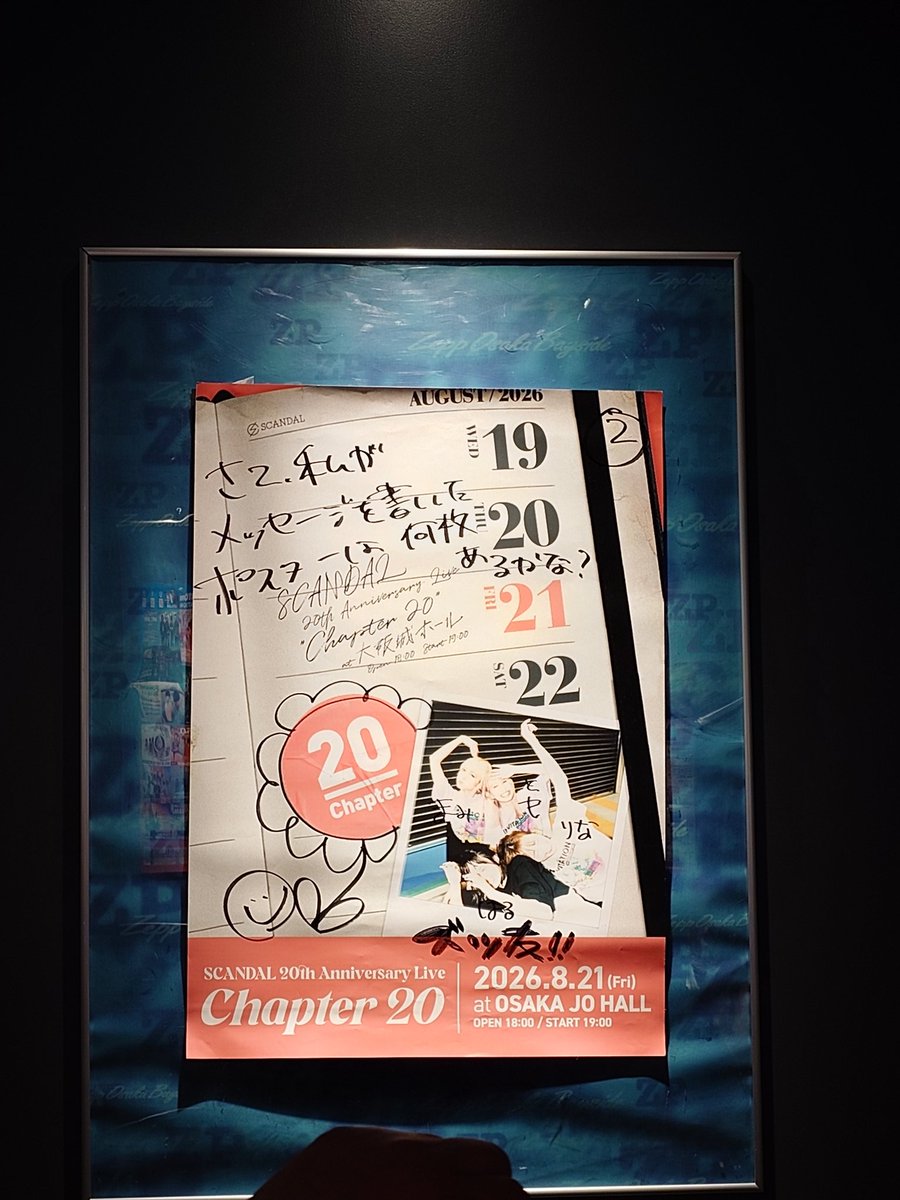 Zepp Osaka Bayside
AUGUST/2026
SCANDAL
②
WED 19
さて、私が
メッセージを書いた
ポスターは 何枚
あるかな?
THU 20
SCANDAL
20th Anniversary Live
"Chapter 20"
at 大阪城ホール
Open 18:00 Start 19:00
FRI 21
SAT 22
20
Chapter
まみ
とも
りな
はる
ズッ友!!
SCANDAL 20th Anniversary Live
Chapter 20
2026.8.21(Fri)
at OSAKA JO HALL
OPEN 18:00 / START 19:00